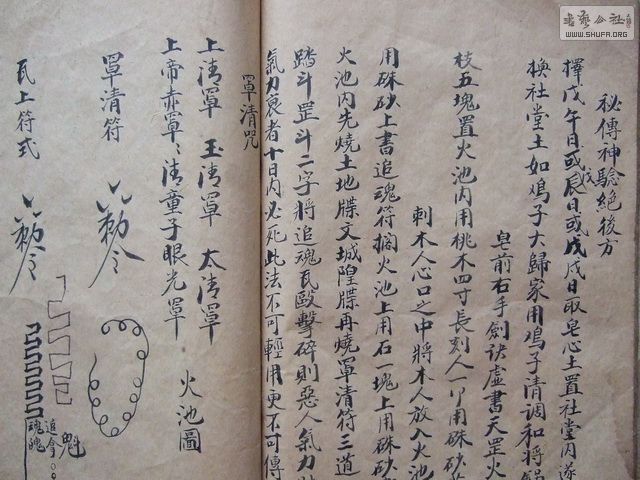 秘傳神驗絕後方
擇戊午日或戊辰日或戊戌日取皂心土置社堂内遂
換社堂土如鳮子大歸家用鳮子清調和將鍋
皂前右手劍訣虛書天罡火
枝五塊置火池内用桃木四寸長刻人一个用硃砂
刺木人心口之中將木人放入火池
用硃砂上書追魂符擱火池上用石一塊上用硃砂
火池内先燒土地牒文城隍牒再燒罩清符三道
踏斗罡斗二字將追魂瓦毆擊碎則惡人氣力
氣力衰者十日内必死此法不可輕用更不可傳
罩清咒
上清罩 玉清罩 太清罩
上帝赤罩罩清童子眼光罩
火池圖
罩清符
敕令
瓦上符式
敕令
追拿
魂魄
魁
書藝公社
WWW.SHUFA.ORG